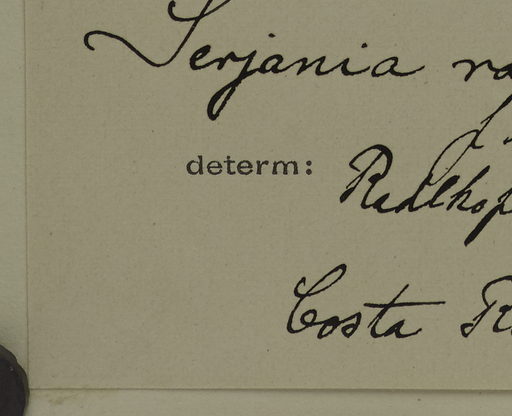 Serjania ra
f.
determ: Radlkop
Costa R